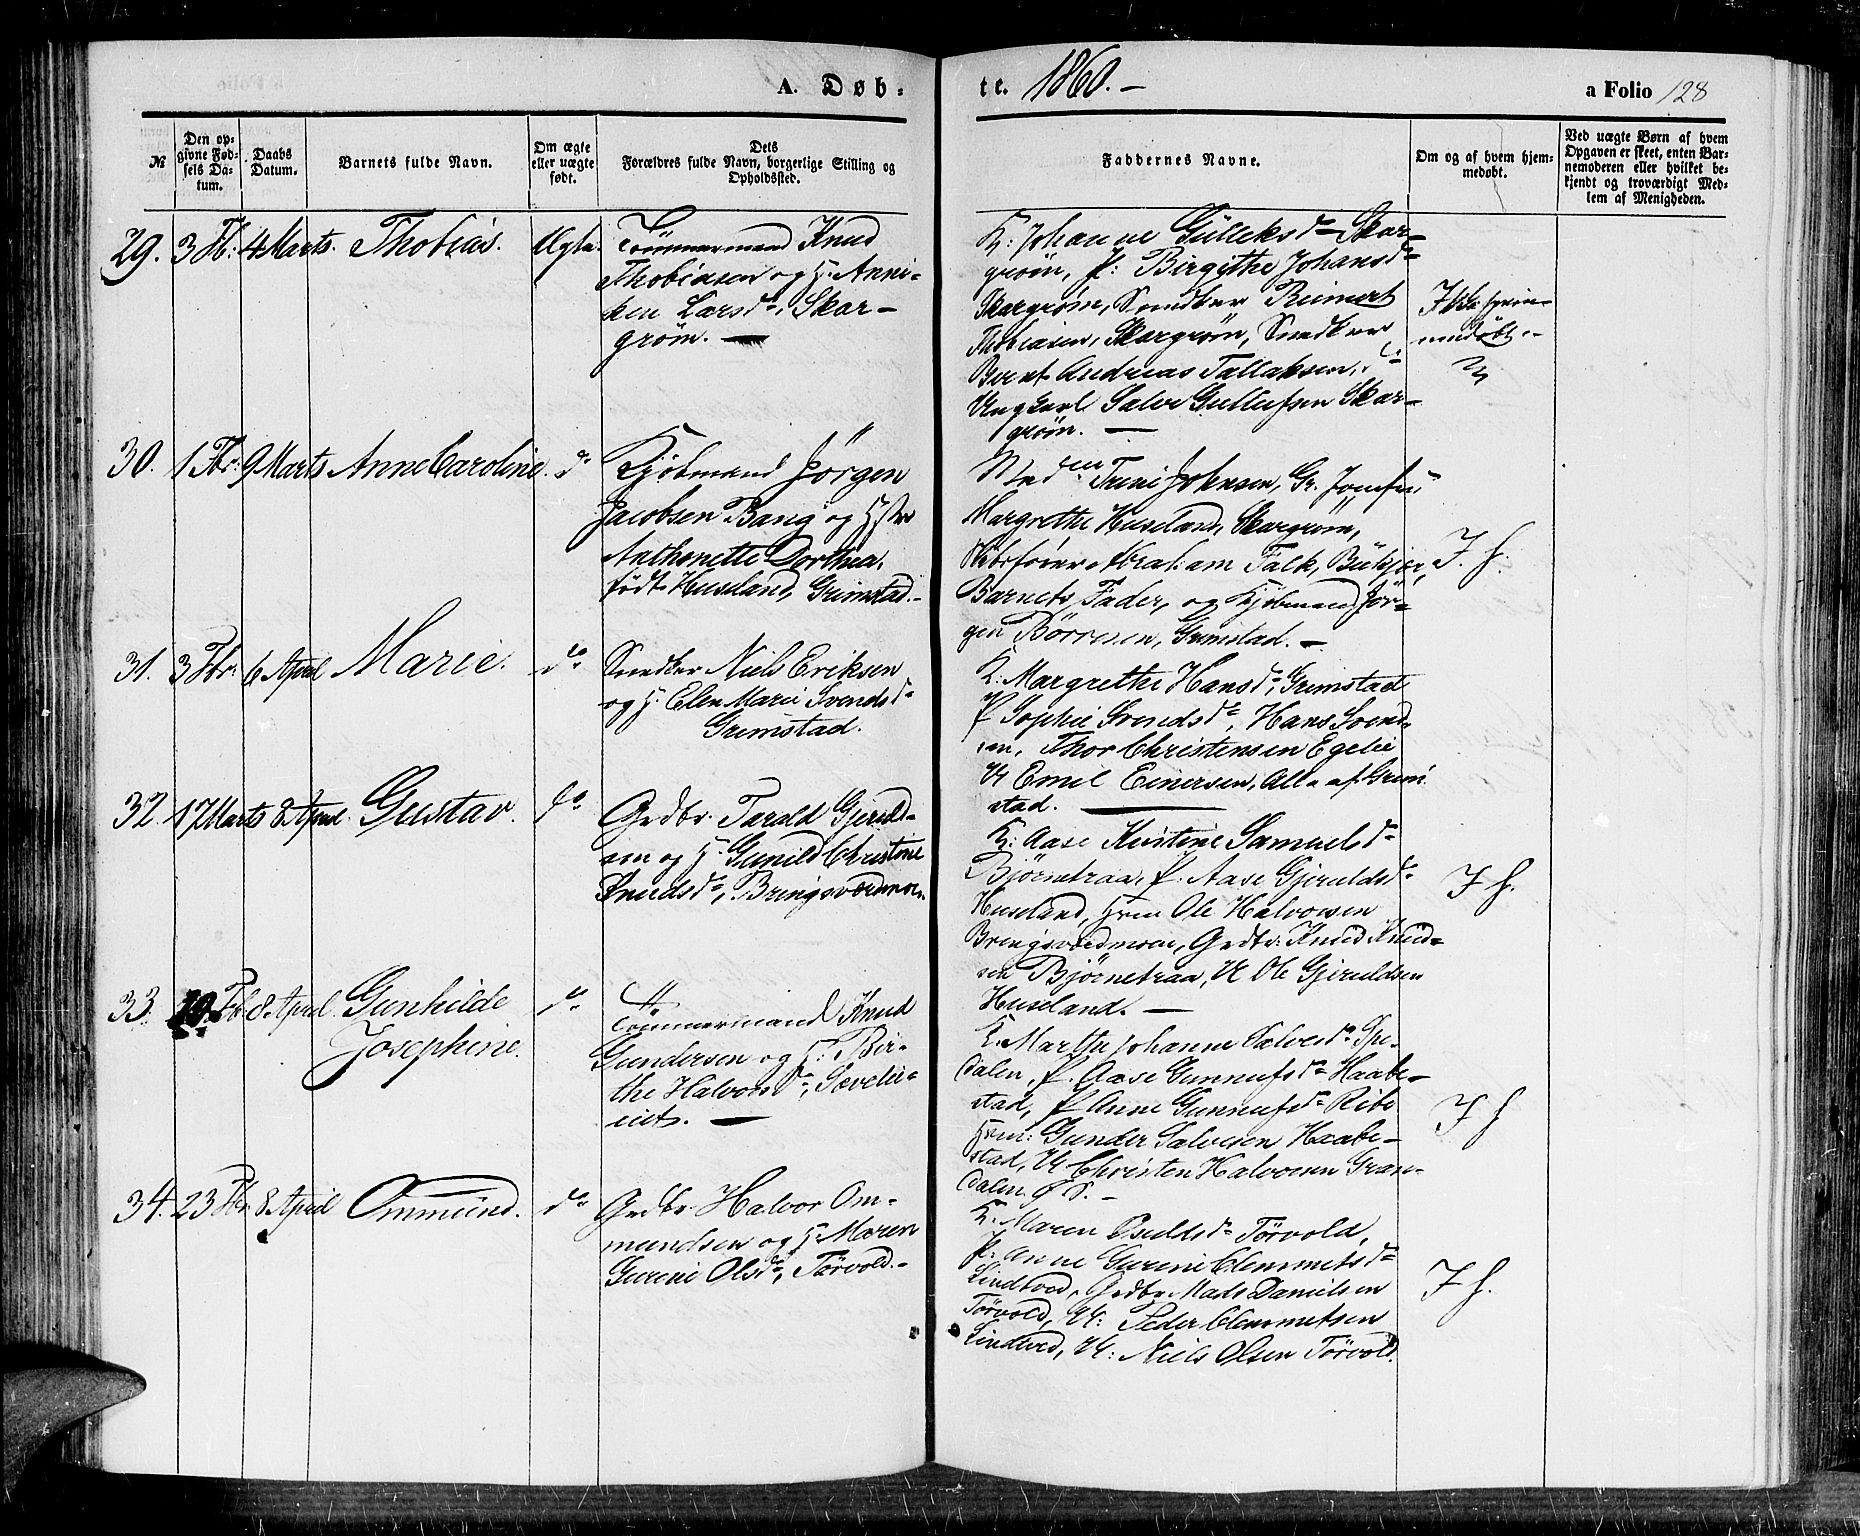 A. Døb-
te. 1860.-
a Folio 128
№
Den op-
givne Fød-
sels Da-
tum.
Daabs
Datum.
Barnets fulde Navn.
Om ægte
eller uægte
født.
Dets
Forældres fulde Navn, borgerlige Stilling og
Opholdssted.
Faddernes Navne.
Om og af hvem hjem-
medøbt.
Ved uægte Børn af hvem
Opgaven er skeet, enten Bar-
nemoderen eller hvilket be-
kjendt og troværdigt Med-
lem af Menigheden.
29. 3 Fb: 4 Marts. Thobias. Ægte.
Tømmermand Knud
Thobiasen og H. Anni-
ken Larsd., Skar-
grøm. —
K: Johanne Gulleksd. Skar-
grøm, P: Birgithe Johansd.
Skargrøm, Snedker Reimert
Thobiasen, Skargrøm, Snedker
Bernt Andreas Tallaksen,
Ungkarl Salve Gullufsen Skar-
grøm. —
Ikke hjem-
medøbt.
30. 1 Fbr: 9 Marts Anne Caroline. do
Kjøbmand Jörgen
Jacobsen Bang og Hstr
Anthonette Dorthea,
födt Huseland, Grimstad.-
Mad. Trine Johnsen, Gr. Jomfru
Margrethe Huseland, Skargrøm,
Skibsfører Abraham Falk, Bükjær,
Barnets Fader, og Kjöbmand Jör-
gen Börresen, Grimstad. —
I. h.
31. 3 Fbr: 6 April Marie. do
Snedker Niels Eriksen
og H. Elen Marie Svendsd.
Grimstad.
K. Margrethe Hansd., Grimstad
P Sophie Svendsd., Hans Svend-
sen, Thor Christensen Egelie
U Emil Einersen, Alle af Grim
stad. —
32. 17 Marts 8 April. Gustav. do
Grdbr. Tarald Gjeruld-
sen og H. Gunild Christine
Knudsd., Bringsværdmoen.
K: Aase Kirstine Samuelsd.
Bjørnetraa, P. Aase Gjeruldsd.
Huseland, Hrm Ole Halvorsen
Bringsværdmoen, Grdbr: Knud Knud-
sen Bjørnetraa, U Ole Gjeruldsen
Huseland. —
I h.
33. Fb 8 April Gunhilde
Josephine. do
Tømmermand Knud
Gundersen og H. Bir-
the Halvorsd., Sævelie-
eiet. —
K. Marthe Johanne Salvesd. Spe-
dalen, P. Aase Gunnufsd. Haabe-
stad, P Anne Gunnufsd. Ribe
Hrm: Gunder Salvesen Haabe-
stad, U Christen Halvorsen Gran-
dalen
I h
34. 23 Fbr. 8 April Ommund. do
Grdbr. Halvor Om-
mundsen og H. Maren
Gurine Olsd., Törvold.-
K. Maren Osuldsd. Törvold,
P. Anne Gurine Clemmetsd.
Lindtved, Grdbr. Mads Danielsen
Törvold, U: Peder Clemmetsen
Lindtved, U: Niels Olsen Törvold.
I h.